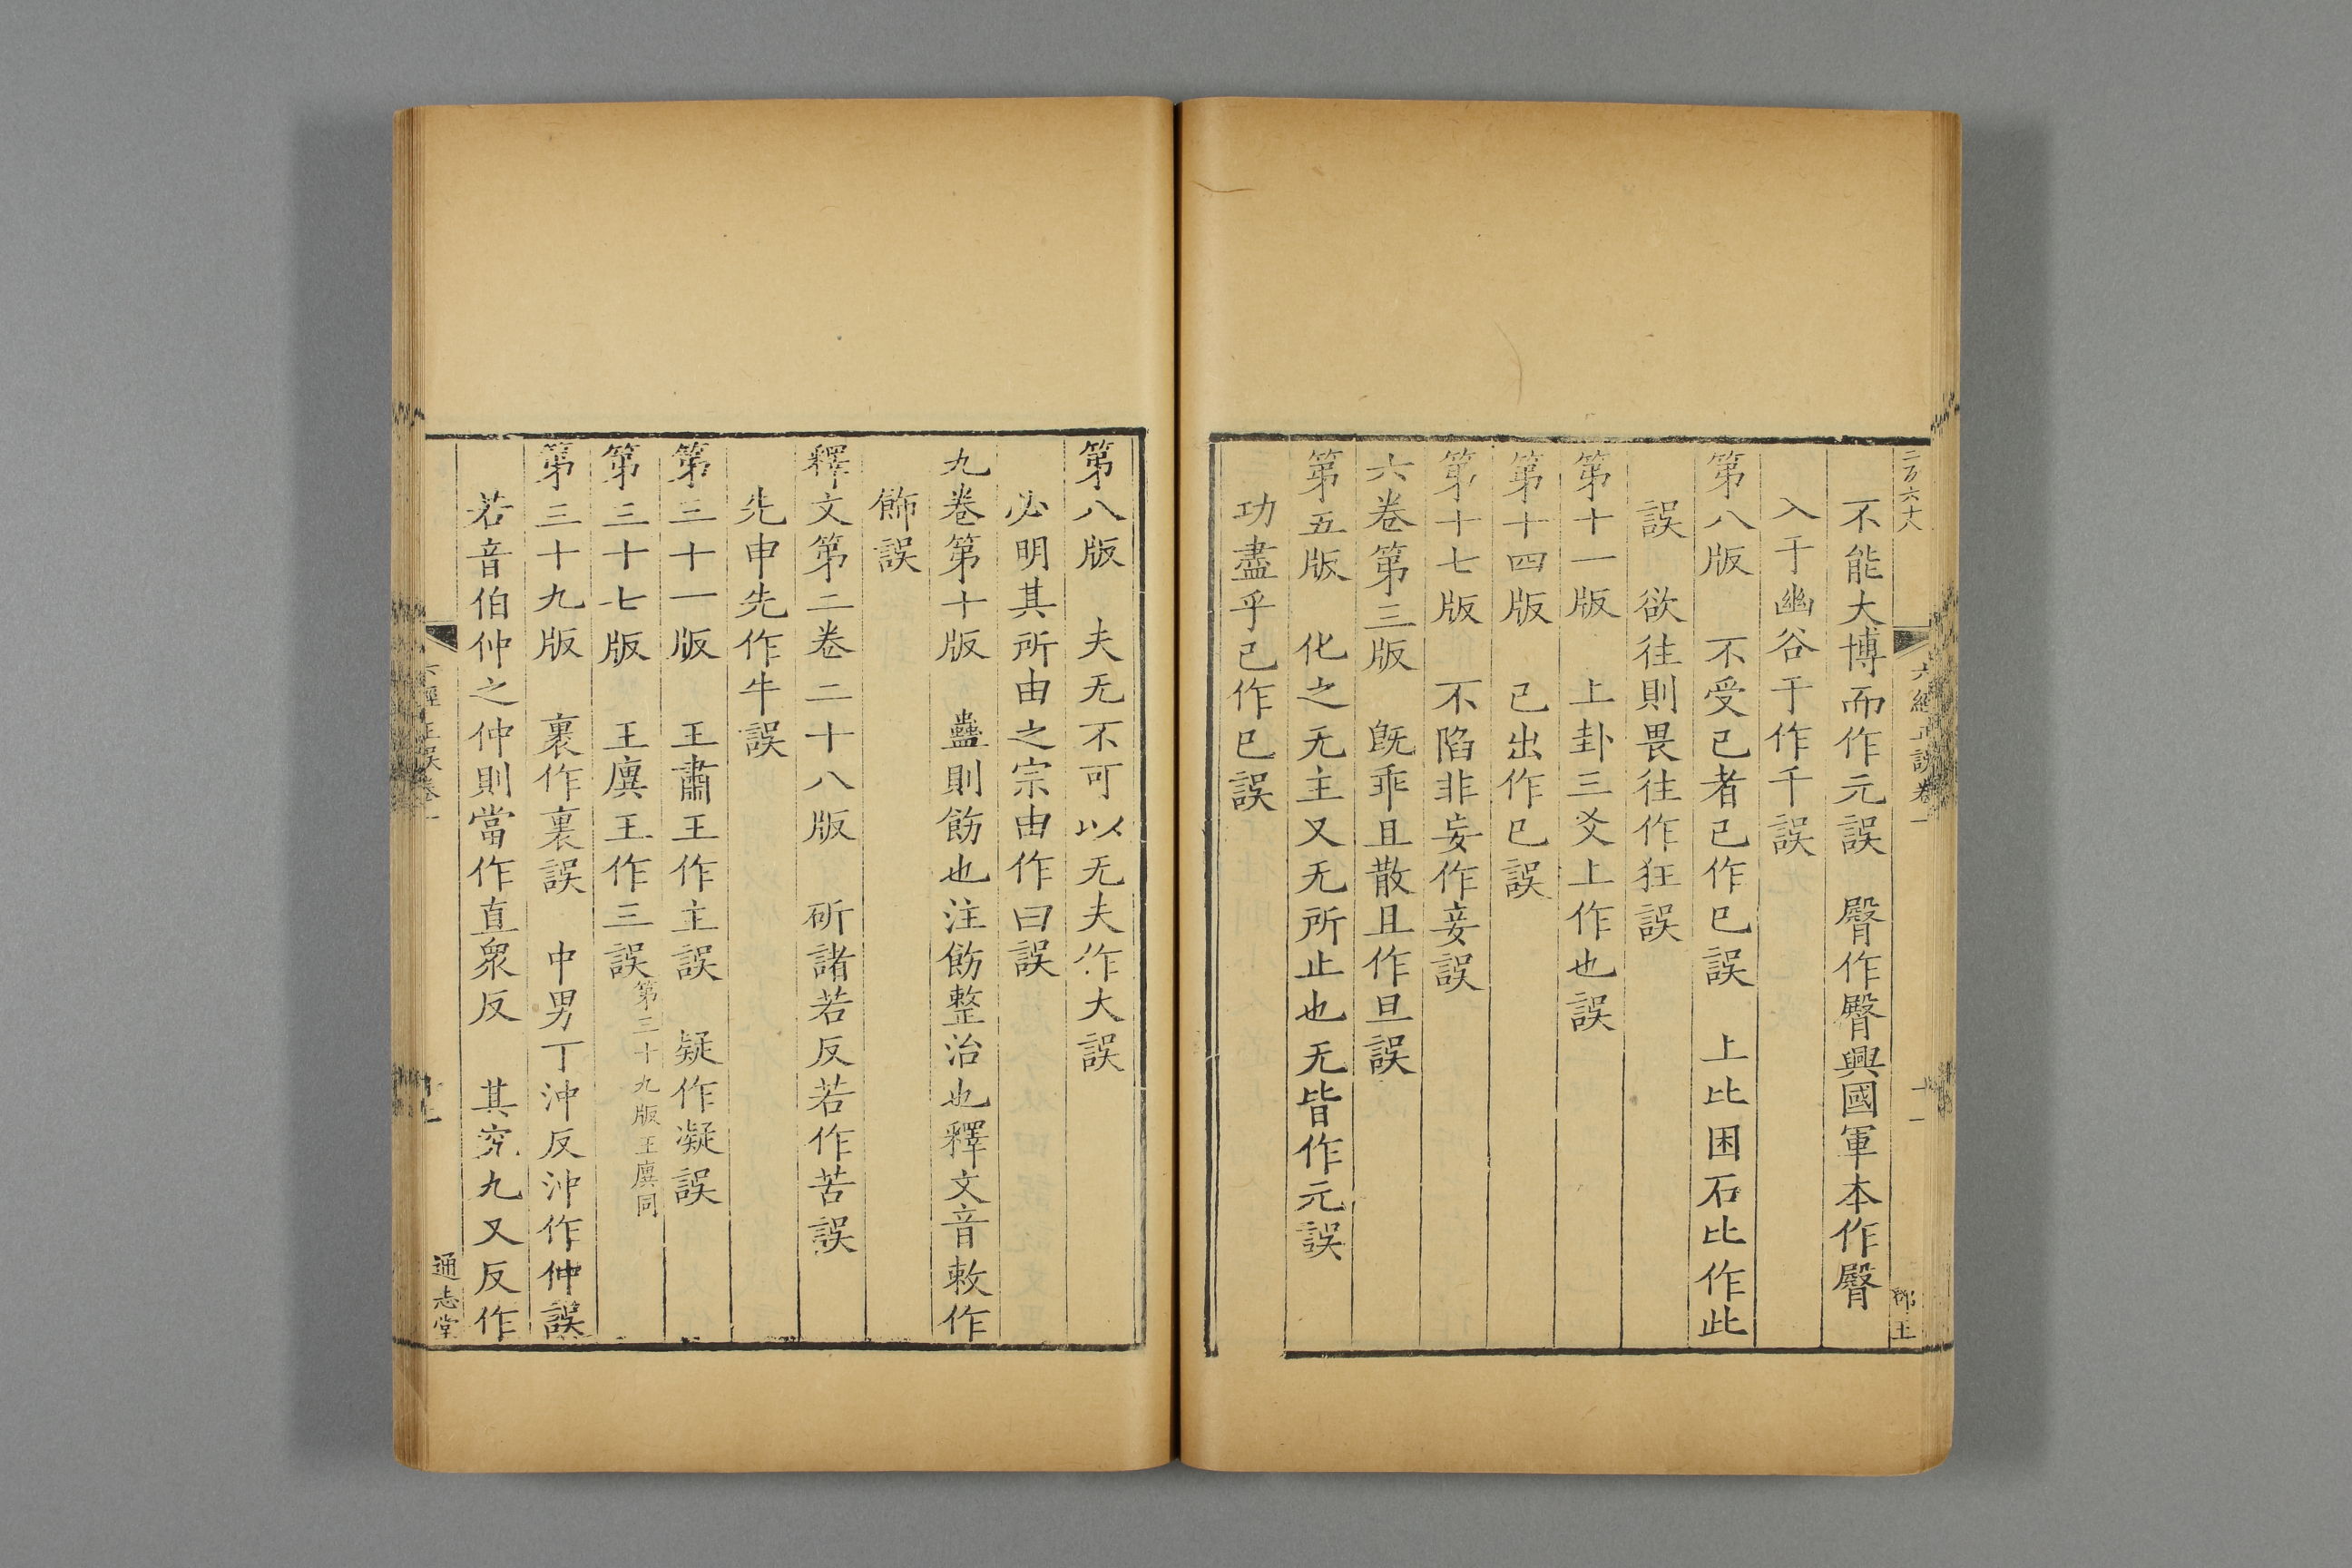 二百六十八
六經正誤卷一
十一
不能大博而作元誤　臀作臋興國軍本作臀
入于幽谷于作千誤
第八版　不受已者已作巳誤　上比困石比作此
誤　欲往則畏往作狂誤
第十一版　上卦三爻上作也誤
第十四版　已出作巳誤
第十七版　不陷非妄作妾誤
六卷第三版　旣乖且散且作旦誤
第五版　化之无主又无所止也无皆作元誤
功盡乎已作巳誤
第八版　夫无不可以无夫作大誤
必明其所由之宗由作曰誤
九卷第十版　蠱則飭也注飭整治也釋文音敕作
飾誤
釋文第二卷二十八版　斫諸若反若作苦誤
先申先作牛誤
第三十一版　王肅王作主誤　疑作凝誤
第三十七版　王廙王作三誤第三十九版王廙同
第三十九版　裹作裏誤　中男丁沖反沖作仲誤
若音伯仲之仲則當作直衆反　其究九又反作
六經正誤卷一
通志堂